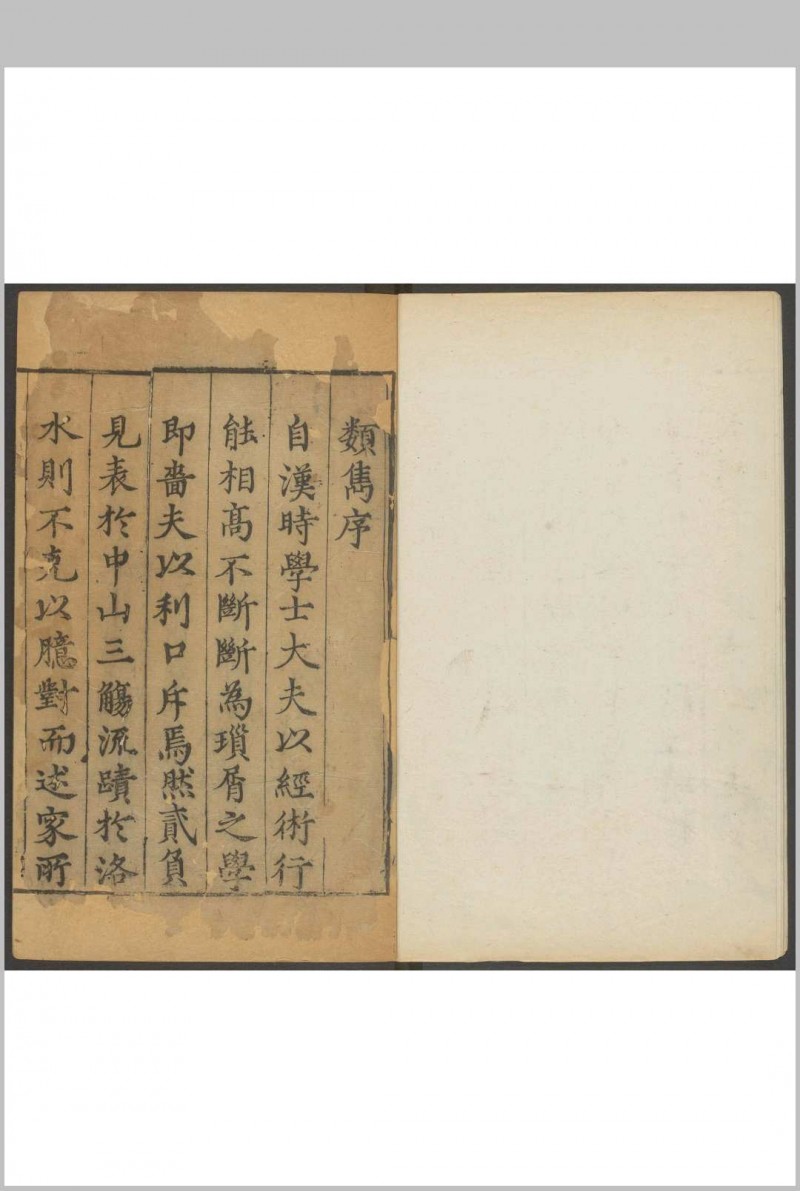 類雋序
自漢時學士大夫以經術行
能相高不斷斷為瑣屑之學
即嗇夫以利口斥焉然貳負
見表於中山三觴流蹟於洛
水則不克以臆對而述家所